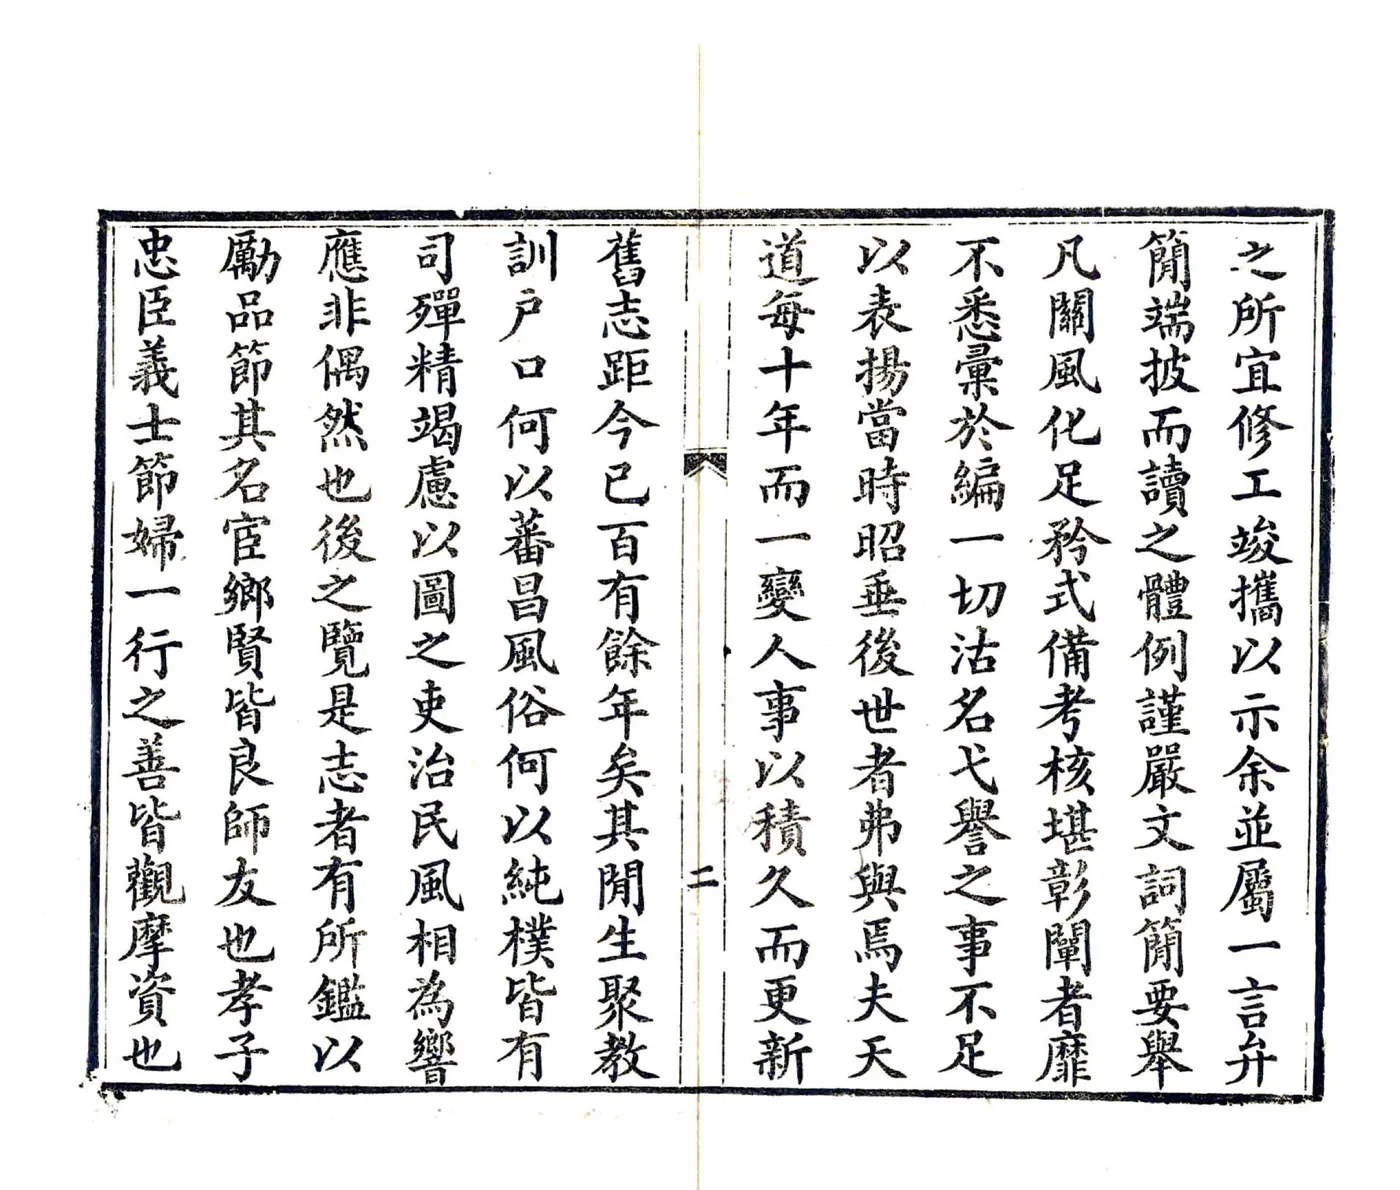 之所宜修工竣攜以示余並屬一言弁
簡端披而讀之體例謹嚴文詞簡要舉
凡關風化足矜式備考核堪彰闡者靡
不悉彙於編一切沽名弋譽之事不足
以表揚當時昭垂後世者弗與焉夫天
道每十年而一變人事以積久而更新
二
舊志距今已百有餘年矣其閒生聚教
訓户口何以蕃昌風俗何以純樸皆有
司殫精竭慮以圖之吏治民風相為響
應非偶然也後之覽是志者有所鑑以
勵品節其名宦鄉賢皆良師友也孝子
忠臣義士節婦一行之善皆觀摩資也